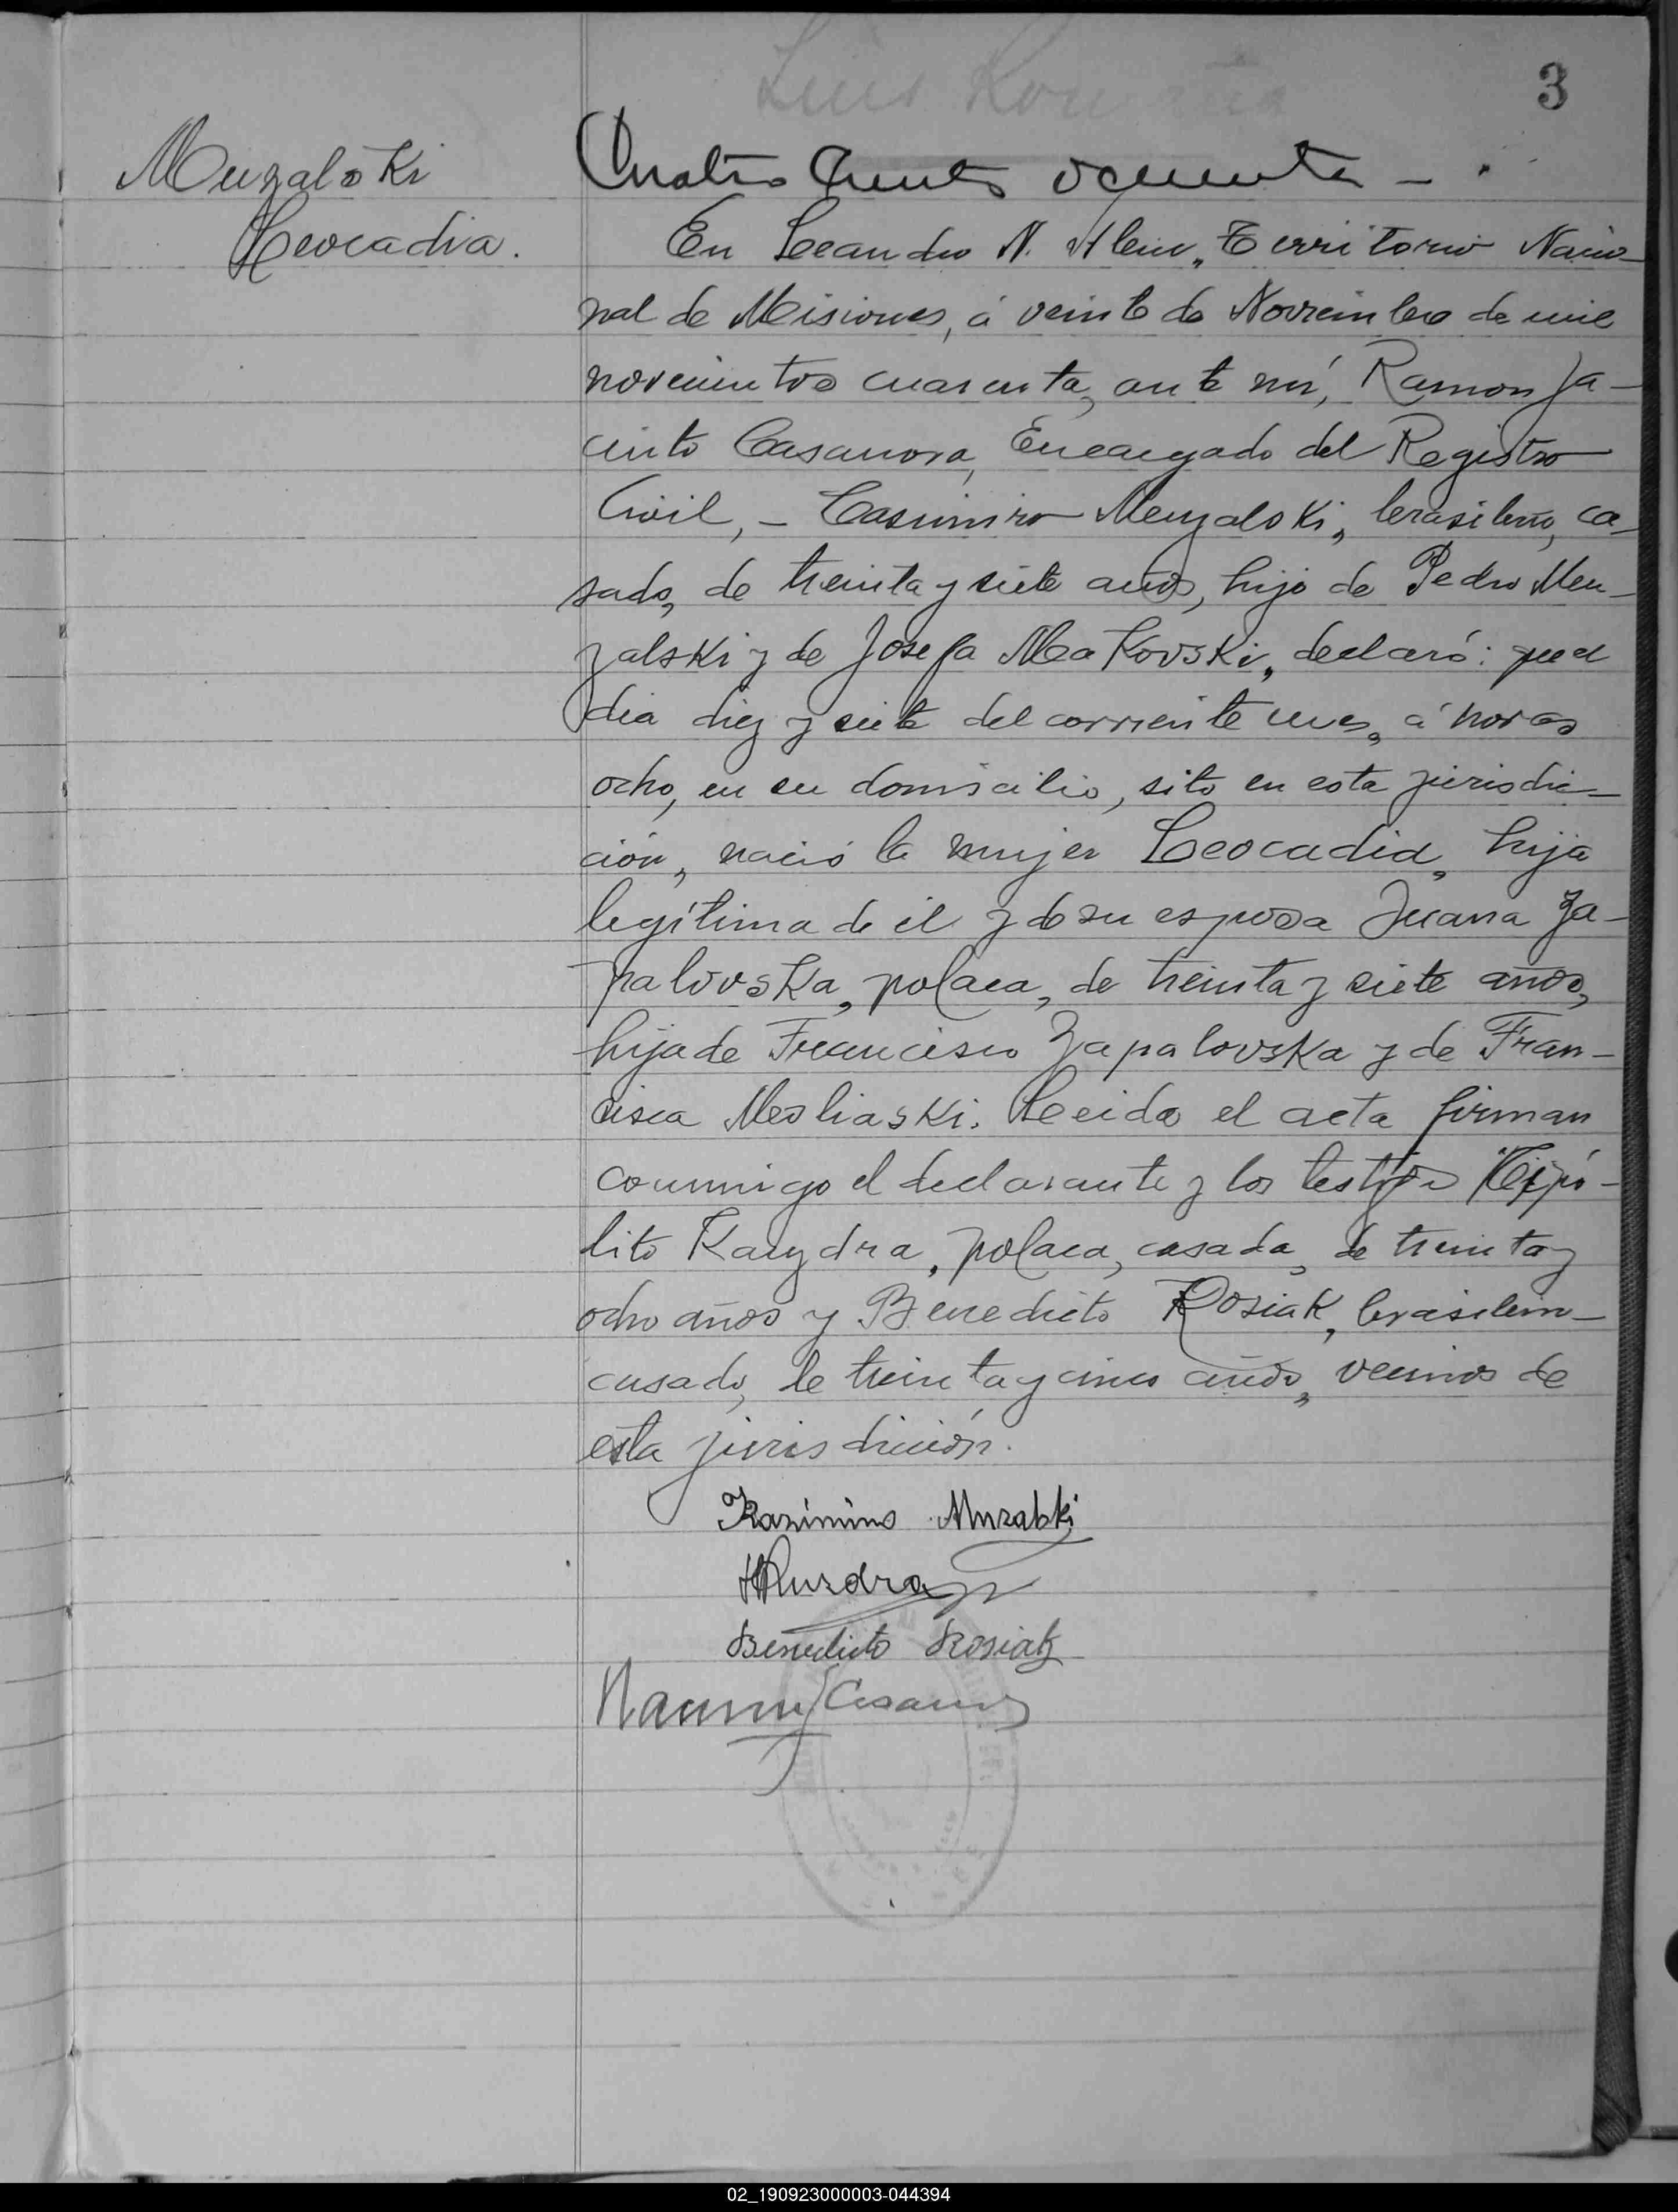 3
Muzalski
Leocadia.
Cuatro cientos ochenta - .
En Leandro N. Alem, Territorio Nacio-
nal de Misiones, á veinte de Noviembre de mil
novecientos cuarenta, ante mí, Ramon Ja-
cinto Casanova, Encargado del Registro
Civil, - Casimiro Muzalski, brasilero, ca-
sado, de treinta y siete años, hijo de Pedro Mu-
zalski y de Josefa Makovski, declaró: que el
dia diez y siete del corriente mes, á horas
ocho, en su domicilio, sito en esta jurisdic-
ción, nació la mujer Leocadia, hija
legítima de él y de su esposa Juana Za-
palovska, polaca, de treinta y siete años,
hija de Francisco Zapalovska y de Fran-
cisca Mesliaski. Leida el acta firman
conmigo el declarante y los testigos Hipó-
lito Kuzdra, polaca, casada, de treinta y
ocho años y Benedicto Rosiak, brasilero
casado, de treinta y cinco años, vecinos de
esta jurisdicción.
Kazimiro Muzalski
HKuzdra
Benedicto Rosiak
Ramon J Casanova
02_190923000003-044394